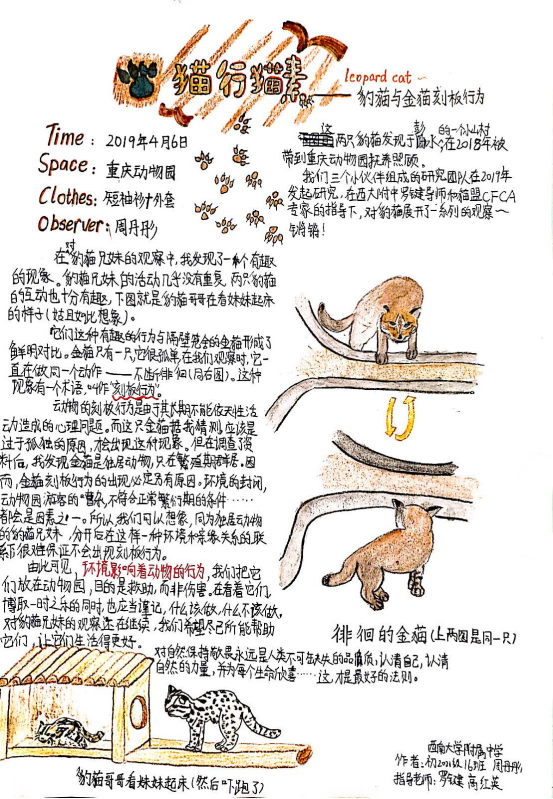 猫行猫素
leopard cat~
——豹猫与金猫刻板行为
Time: 2019年4月6日
Space: 重庆动物园
Clothes: 短袖衫+外套
Observer: 周丹彤
这两只豹猫发现于彭水的一个小山村,在2018年被
带到重庆动物园抚养照顾。
我们三个小伙伴组成的研究团队在2019年
发起研究,在西大附中罗键导师和猫盟CFCA
专家的指导下,对豹猫展开了一系列的观察~
锵锵!
在对豹猫兄妹的观察中,我发现了一个有趣
的现象。豹猫兄妹的活动几乎没有重复,两只豹猫
的互动也十分有趣,下图就是豹猫哥哥在看妹妹起床
的样子(姑且如此想象)。
它们这种有趣的行为与隔壁笼舍的金猫形成了
鲜明对比。金猫只有一只,它很孤单,在我们观察时,它一
直在做同一个动作——不断徘徊(见右图)。这种
现象有一个术语,叫作“刻板行为”。
动物的刻板行为是由于其长期不能依天性活
动造成的心理问题。而这只金猫我猜测,应该是
过于孤独的原因,才会出现这种现象。但在调查了资
料后,我发现金猫是独居动物,只在繁殖期群居。因
而,金猫刻板行为的出现必定另有原因。环境的封闭,
动物园游客的嘈杂,不符合正常繁衍期的条件……
都会是因素之一。所以,我们可以想象,同为独居动物
的豹猫兄妹,分开后在这样一种环境和亲缘关系的联
系下很难保证不会出现刻板行为。
由此可见,环境影响着动物的行为,我们把它
们放在动物园,目的是救助,而非伤害。在看着它们,
博取一时之乐的同时,也应当谨记,什么该做,什么不该做。
对豹猫兄妹的观察还在继续,我们希望尽己所能帮助
它们,让它们生活得更好。
对自然保持敬畏永远是人类不可缺失的品质,认清自己,认清
自然的力量,并为每个生命欣喜……这,才是最好的法则。
徘徊的金猫(上两图是同一只)
豹猫哥哥看妹妹起床(然后吓跑了)
西南大学附属中学
作者:初2021级16班 周丹彤
指导老师:罗键 高红英